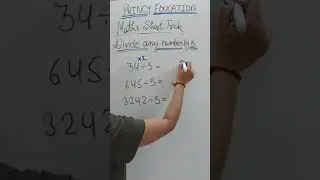 PRINCY EDUCATION
Maths Short Trick
Divide any number by 5
x2
34÷5 =
645÷5=
3242÷5=